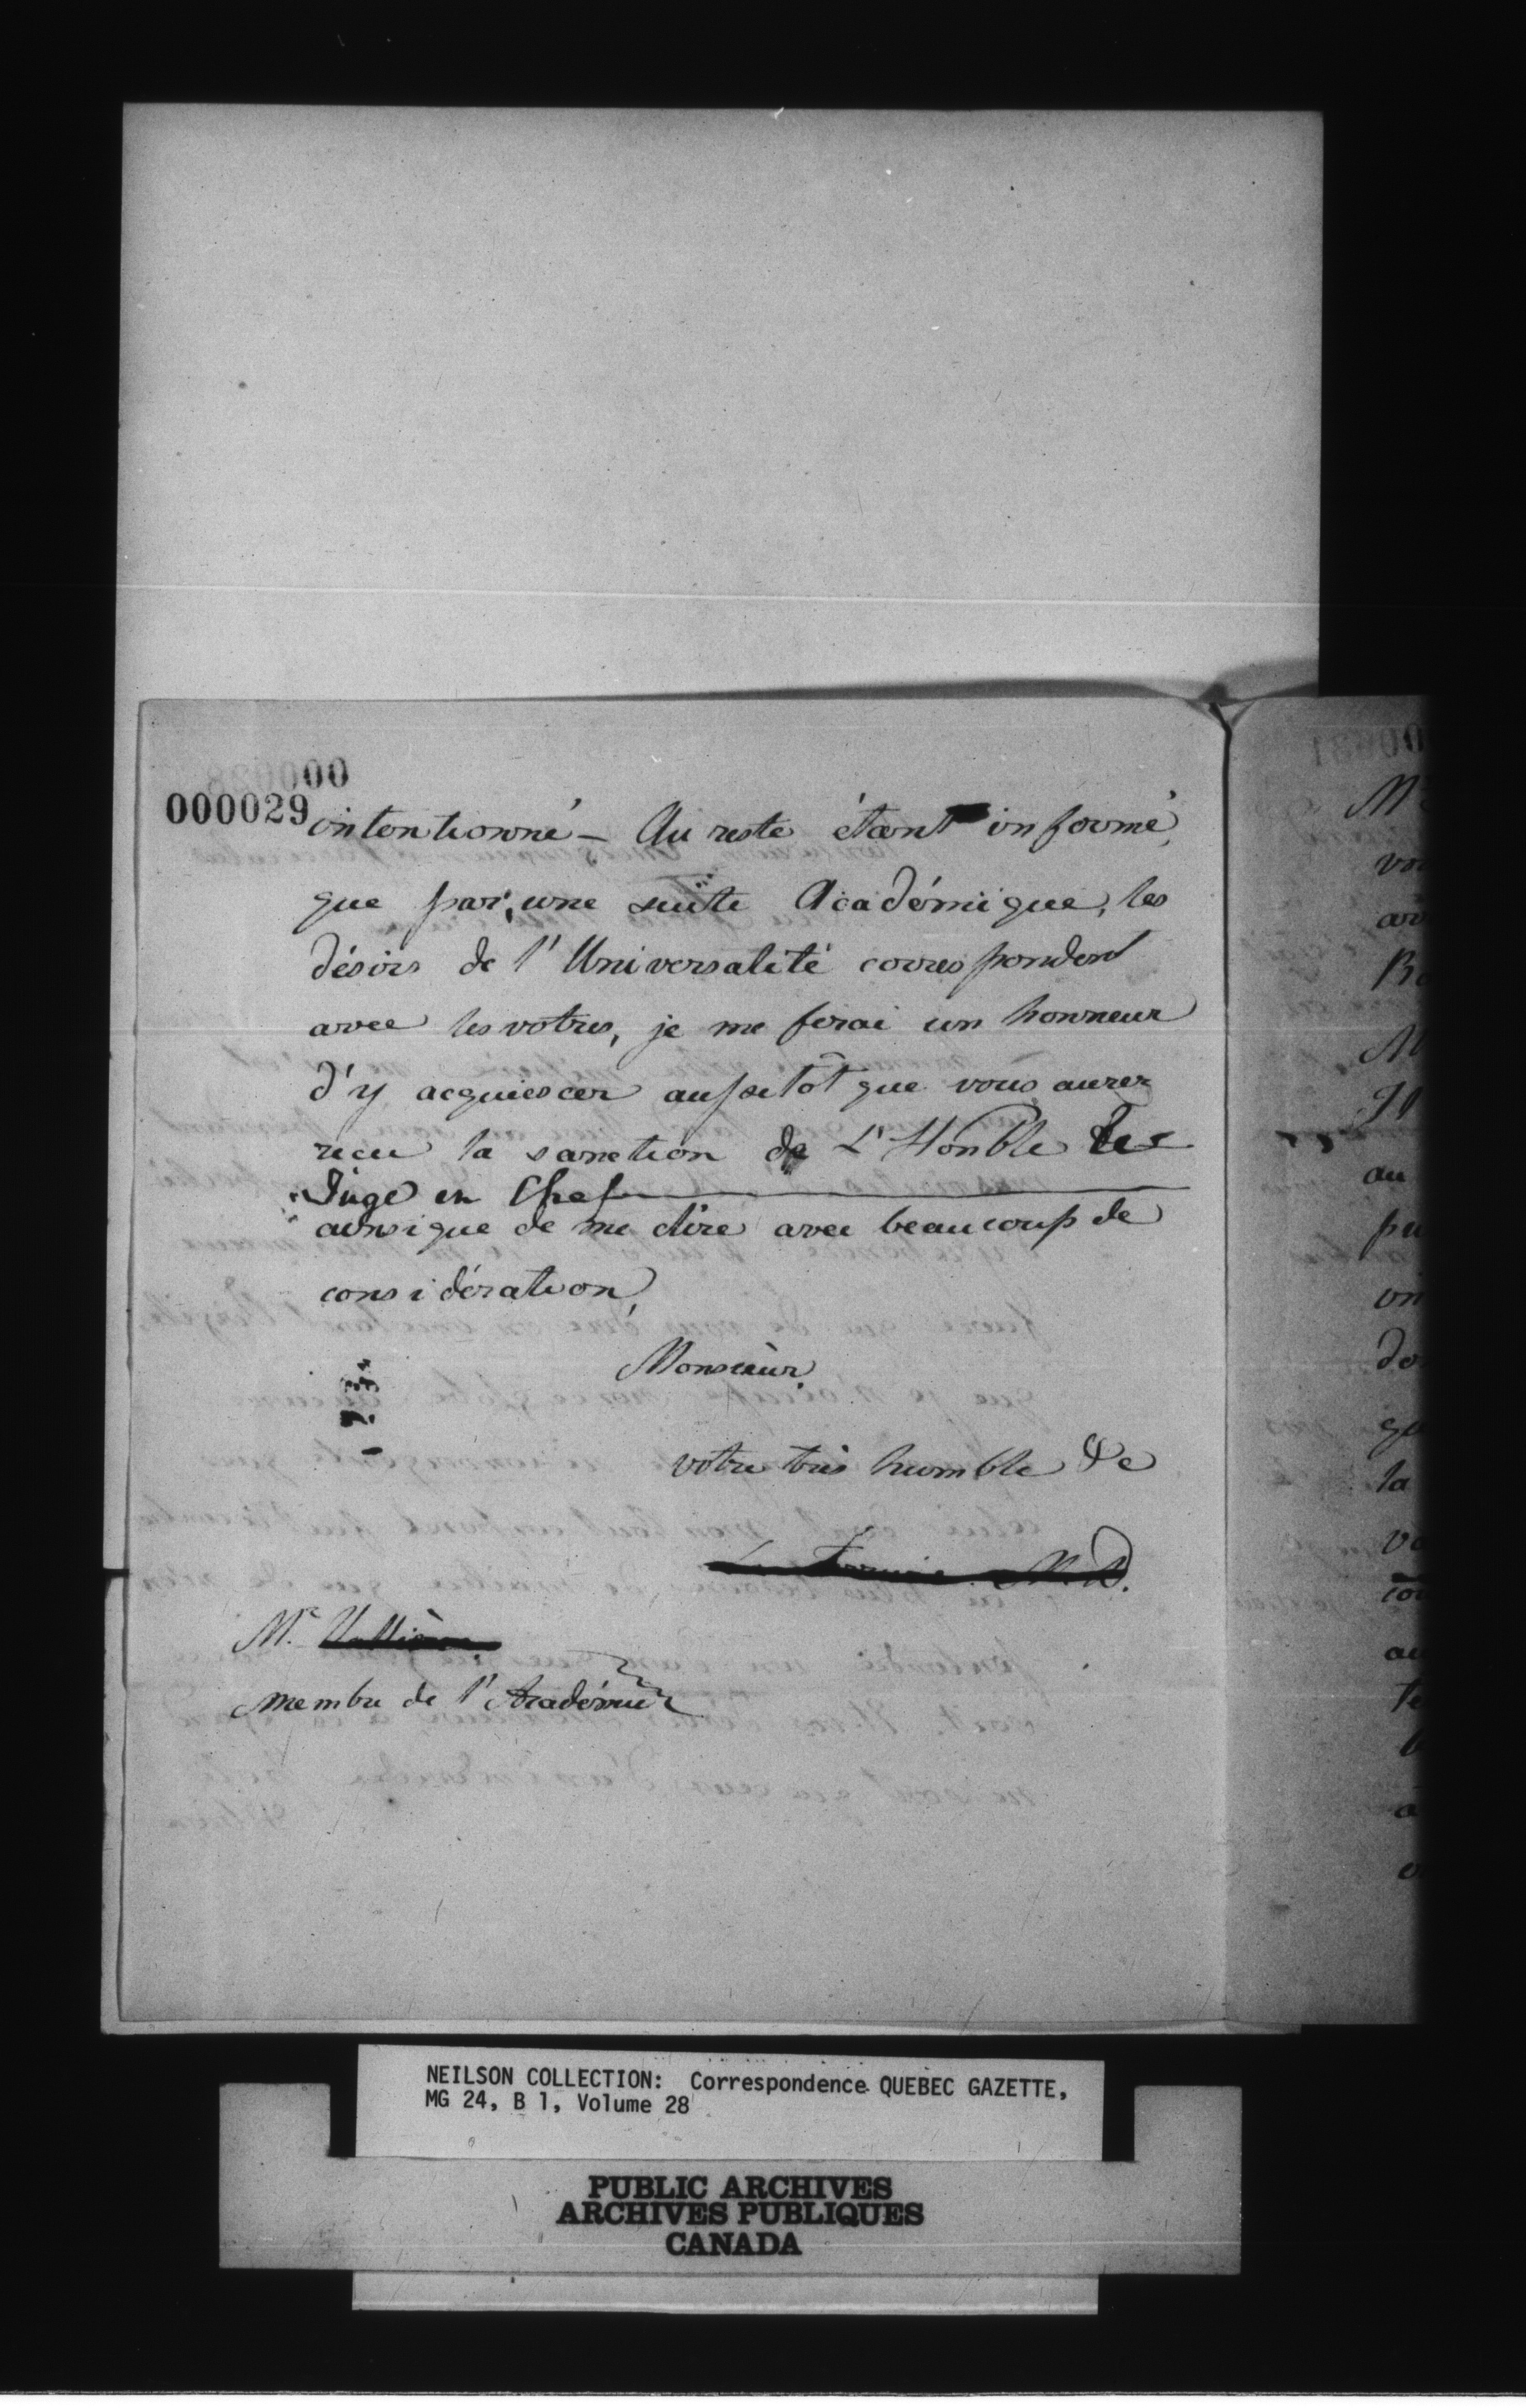 00
000029
intentionné — Au reste étant informé,
que par une suite Académique, les
désirs de l'Universalité correspondent
avec les votres, je me ferai un honneur
d'y acquiescer aussitôt que vous aurez
recu la sanction de L'Honble
Juge en Chef
ainsi que de me dire avec beaucoup de
considération,
Monsieur,
votre très humble &c
M.D.
Mr.
Membre de l'Académie
NEILSON COLLECTION: Correspondence QUEBEC GAZETTE,
MG 24, B 1, Volume 28
PUBLIC ARCHIVES
ARCHIVES PUBLIQUES
CANADA